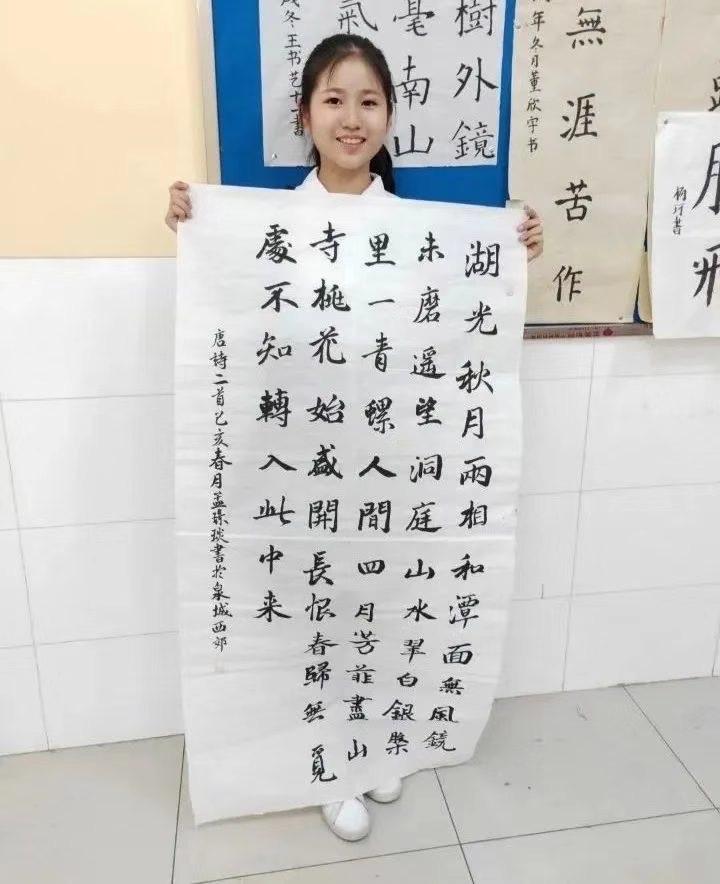 杨
書
無涯苦作
年冬月董欣宇书
樹外鏡
毫南山
氣
冬王书艺
湖光秋月兩相和潭面無風鏡
未磨遥望洞庭山水翠白銀槃
里一青螺人間四月芳菲盡山
寺桃花始盛開長恨春歸無覓
處不知轉入此中来
唐詩二首己亥春月孟書於泉城西郊